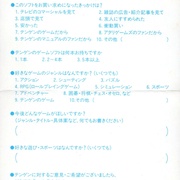 ●このソフトをお買い求めになったきっかけは？
1. テレビのコマーシャルを見て　2. 雑誌の広告・紹介記事を見て
3. 店頭で見て　4. 友人にすすめられて
5. 小売店で　6. 新聞で
7. テンゲンのゲームのファンだから　8. アタリのゲームのファンだから
9. テンゲンのマニュアルのファンだから　10. その他（　）
●テンゲンのゲームソフトは何本お持ちですか
1. 1本　2. 2～4本　3. 5本以上
●好きなゲームのジャンルはなんですか（いくつでも）
1. アクション　2. シューティング　3.
4. RPG(ロールプレイングゲーム)　5. シミュレーション　6. スポーツ
7. アドベンチャー　8. 囲碁・将棋・チェス・オセロ、など
9. テーブルゲーム　10. その他（　）
●今後どんなゲームがほしいですか？
（ジャンル・タイトル・具体案など、何でもお書きください）
●好きな遊び・スポーツはなんですか？（いくつでも）
●テンゲンに対するご意見・ご希望がありましたら、